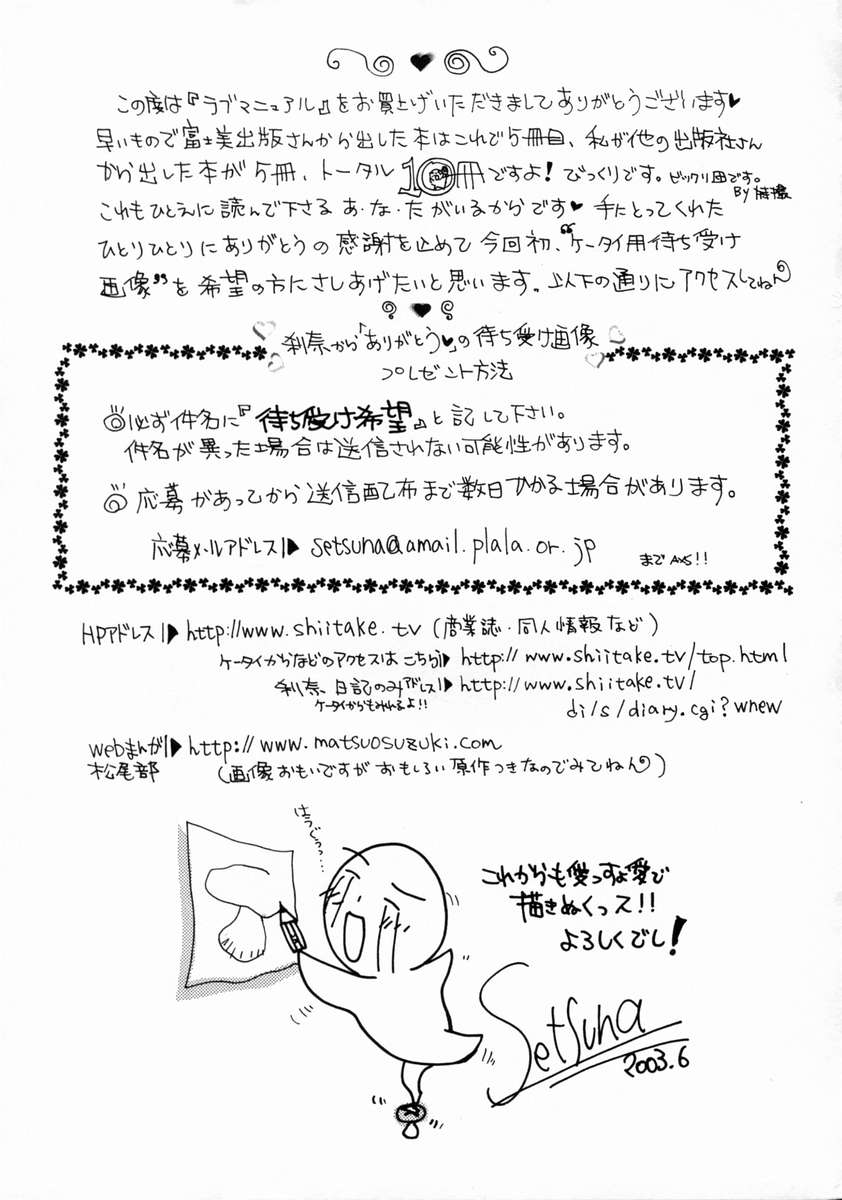 この度は『ラブマニュアル』をお買上げいただきましてありがとうございます♥
早いもので富士美出版さんから出した本はこれで5冊目、私が他の出版社さん
から出した本が5冊、トータル10冊ですよ!びっくりです。ビックリ団です。
By
これもひとえに読んで下さる あ・な・た がいるからです♥ 手にとってくれた
ひとりひとりにありがとうの感謝を止めて今回初、“ケータイ用待ち受け
画像”を希望の方にさしあげたいと思います。以下の通りにアクセスしてねん
利奈から「ありがとう♥」の待ち受け画像
プレゼント方法
◎必ず件名に『待ち受け希望』と記して下さい。
件名が異った場合は送信されない可能性があります。
◎応募があってから送信配布まで数日かかる場合があります。
応募メールアドレス▶ setsuna@amail.plala.or.jp まで
HPアドレス▶ http://www.shiitake.tv (商業誌・同人情報など)
ケータイからなどのアクセスはこちら▶ http://www.shiitake.tv/top.html
利奈、日記のみアドレス▶ http://www.shiitake.tv/
di/s/diary.cgi?wnew
ケータイからもみれるよ!!
webまんが▶ http://www.matsuosuzuki.com
松尾部 (画像おもいですが おもしろい原作つきなのでみてねん)
はうじっっ…
これからも愛っすよ愛で
描きぬくっス!!
よろしくでし!
Setsuna
2003.6